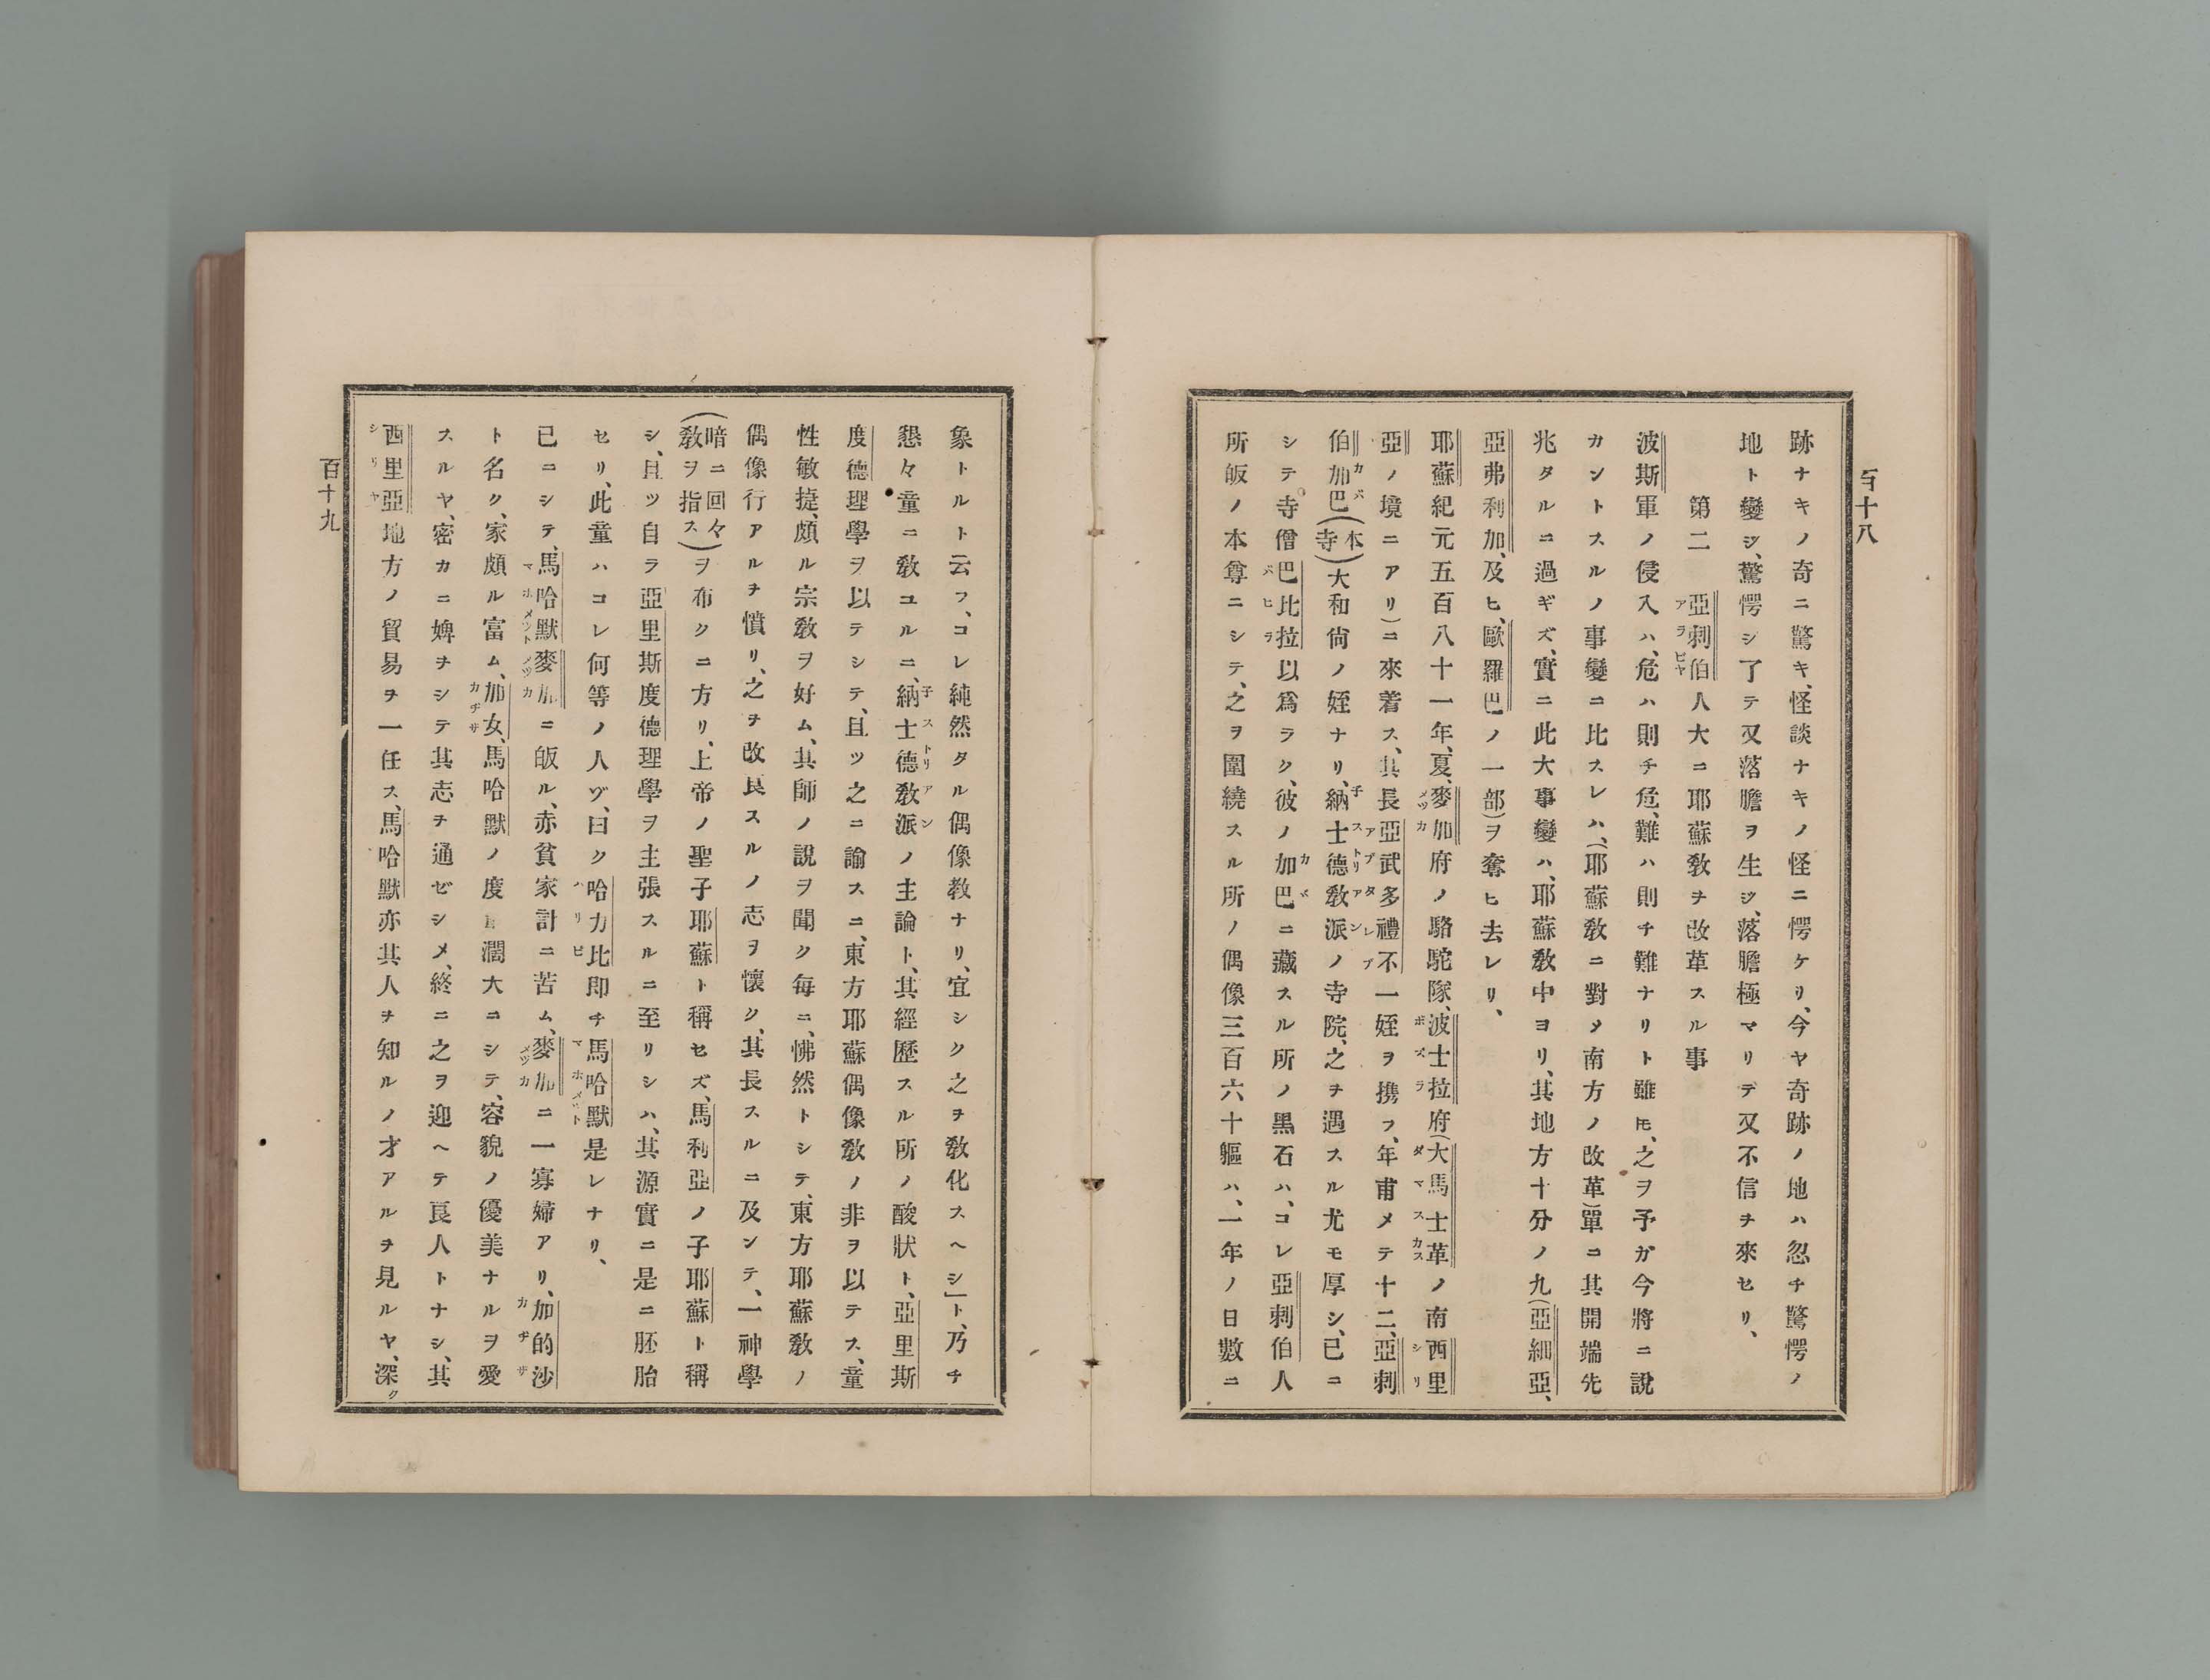 百十八
跡ナキノ奇ニ驚キ、怪談ナキノ怪ニ愕ケリ、今ヤ奇跡ノ地ハ忽チ驚愕ノ
地ト變ジ、驚愕シ了テ又落膽ヲ生ジ、落膽極マリテ又不信チ來セリ、
第二 亞刺伯人大ニ耶蘇敎ヲ改革スル事
アラビヤ
波斯軍ノ侵入ハ、危ハ則チ危、難ハ則チ難ナリト雖モ、之ヲ予ガ今將ニ說
カントスルノ事變ニ比スレハ、(耶蘇敎ニ對メ南方ノ改革)單ニ其開端先
兆タルニ過ギズ、實ニ此大事變ハ、耶蘇敎中ヨリ、其地方十分ノ九(亞細亞、
亞弗利加、及ヒ、歐羅巴ノ一部)ヲ奪ヒ去レリ、
耶蘇紀元五百八十一年、夏、麥加府ノ駱駝隊、波士拉府(大馬士革ノ南西里
メッカ ボズラ ダマスカス シリ
亞ノ境ニアリ)ニ來着ス、其長亞武多禮不一姪ヲ携フ、年甫メテ十二、亞刺
アブタレブ
伯加巴(本寺)大和尙ノ姪ナリ、納士德敎派ノ寺院、之ヲ遇スル尤モ厚シ、已ニ
カバ 子ストリアン
シテ寺僧巴比拉以爲ラク、彼ノ加巴ニ藏スル所ノ黑石ハ、コレ亞刺伯人
バヒラ カバ
所皈ノ本尊ニシテ、之ヲ圍繞スル所ノ偶像三百六十軀ハ、一年ノ日數ニ
象トルト云フ、コレ純然タル偶像敎ナリ、宜シク之ヲ敎化スヘシ」ト、乃チ
懇々童ニ敎ユルニ、納士德敎派ノ主論ト、其經歷スル所ノ酸狀ト、亞里斯
子ストリアン
度德理學ヲ以テシテ、且ツ之ニ諭スニ、東方耶蘇偶像敎ノ非ヲ以テス、童
性敏捷、頗ル宗敎ヲ好ム、其師ノ說ヲ聞ク每ニ、怫然トシテ、東方耶蘇敎ノ
偶像行アルヲ憤リ、之ヲ改良スルノ志ヲ懷ク、其長スルニ及ンテ、一神學
(暗ニ回々敎ヲ指ス)ヲ布クニ方リ、上帝ノ聖子耶蘇ト稱セズ、馬利亞ノ子耶蘇ト稱
シ、且ツ自ラ亞里斯度德理學ヲ主張スルニ至リシハ、其源實ニ是ニ胚胎
セリ、此童ハコレ何等ノ人ゾ、曰ク哈力比即チ馬哈默是レナリ、
ハリビ マホメット
已ニシテ、馬哈默麥加ニ皈ル、赤貧家計ニ苦ム、麥加ニ一寡婦アリ、加的沙
マホメット メッカ メッカ カヂザ
ト名ク、家頗ル富ム、加女、馬哈默ノ度量濶大ニシテ、容貌ノ優美ナルヲ愛
カヂザ
スルヤ、密カニ婢チシテ其志チ通ゼシメ、終ニ之ヲ迎ヘテ良人トナシ、其
西里亞地方ノ貿易ヲ一任ス、馬哈默亦其人ヲ知ルノ才アルヲ見ルヤ、深ク
シリヤ
百十九